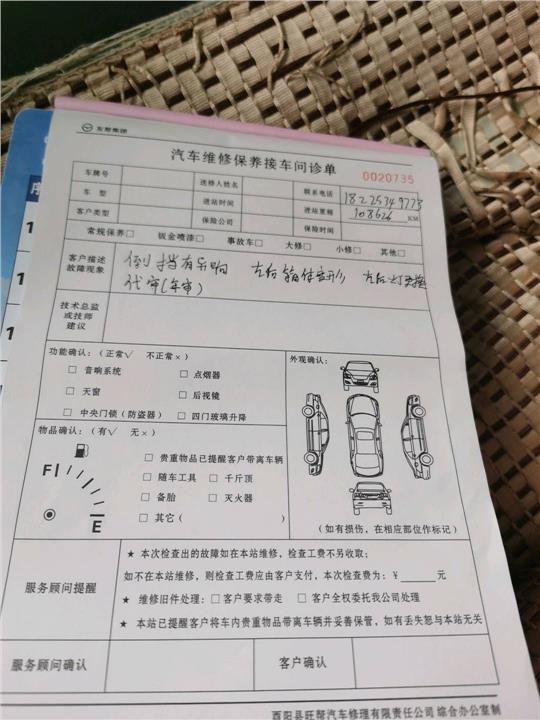 东帮集团
汽车维修保养接车问诊单
0020735
车牌号 送修人姓名 联系电话 18225349773
车 型 进站时间 进站里程 108626 KM
客户类型 保险公司 保险时间
常规保养□ 钣金喷漆□ 事故车□ 大修□ 小修□ 其他□
客户描述 倒挡有异响 左后箱体变形 左后灯更换
故障现象 代审(年审)
技术总监
或技师
建议
功能确认:(正常√ 不正常×) 外观确认:
□ 音响系统 □ 点烟器
□ 天窗 □ 后视镜
□ 中央门锁(防盗器) □ 四门玻璃升降
物品确认:(有√ 无×)
□ 贵重物品已提醒客户带离车辆
F □ 随车工具 □ 千斤顶
□ 备胎 □ 灭火器
E □ 其它( )
(如有损伤,在相应部位作标记)
★ 本次检查出的故障如在本站维修,检查工费不另收取;
如不在本站维修,则检查工费应由客户支付,本次检查费为:¥ 元
服务顾问提醒
★ 维修旧件处理:□ 客户要求带走 □ 客户全权委托我公司处理
★ 本站已提醒客户将车内贵重物品带离车辆并妥善保管,如有丢失恕与本站无关
服务顾问确认 客户确认
酉阳县旺帮汽车修理有限责任公司 综合办公室制
序
1
1
1